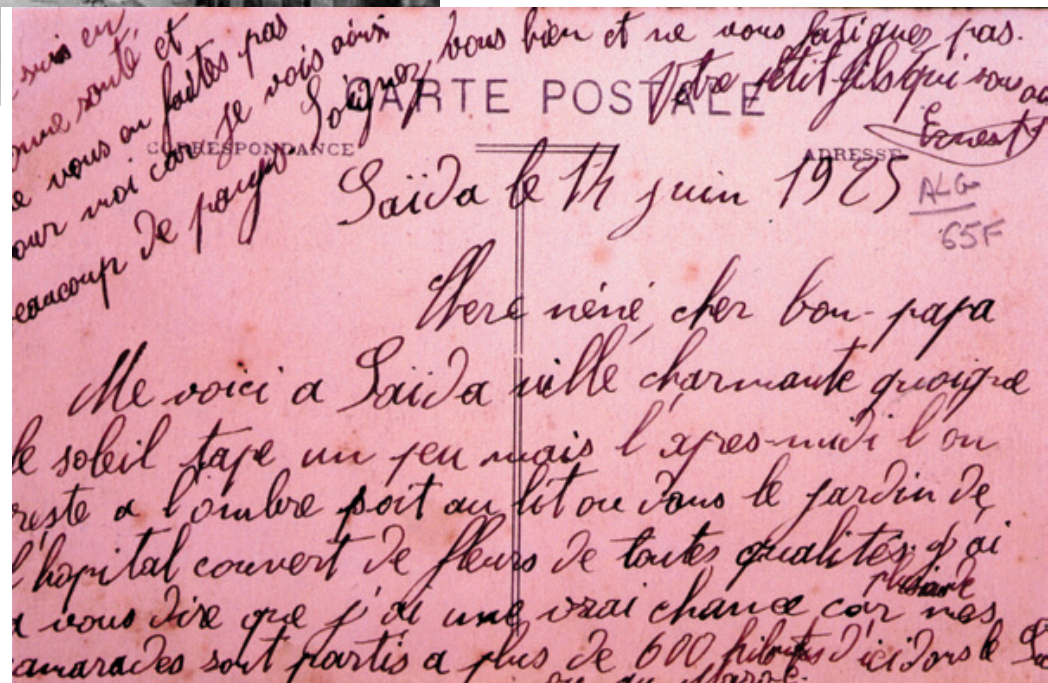 CARTE POSTALE
CORRESPONDANCE
ADRESSE
Saïda le 14 juin 1925
ALG
65F
Chere néné, cher bon-papa
Me voici a Saïda ville charmante quoique
le soleil tape un peu mais l'apres-midi l'on
reste a l'ombre soit au lit ou dans le jardin de
l'hopital couvert de fleurs de toutes qualités. j'ai
a vous dire que j'ai une vrai chance car mes
camarades sont partis a plus de 600 d'ici dans le
ou au Maroc.
suis en
santé et
vous en faites pas
pour moi car je vois ainsi
beaucoup de pays. Soignez vous bien et ne vous fatiguez pas.
Votre petit fils qui vous
Ernest